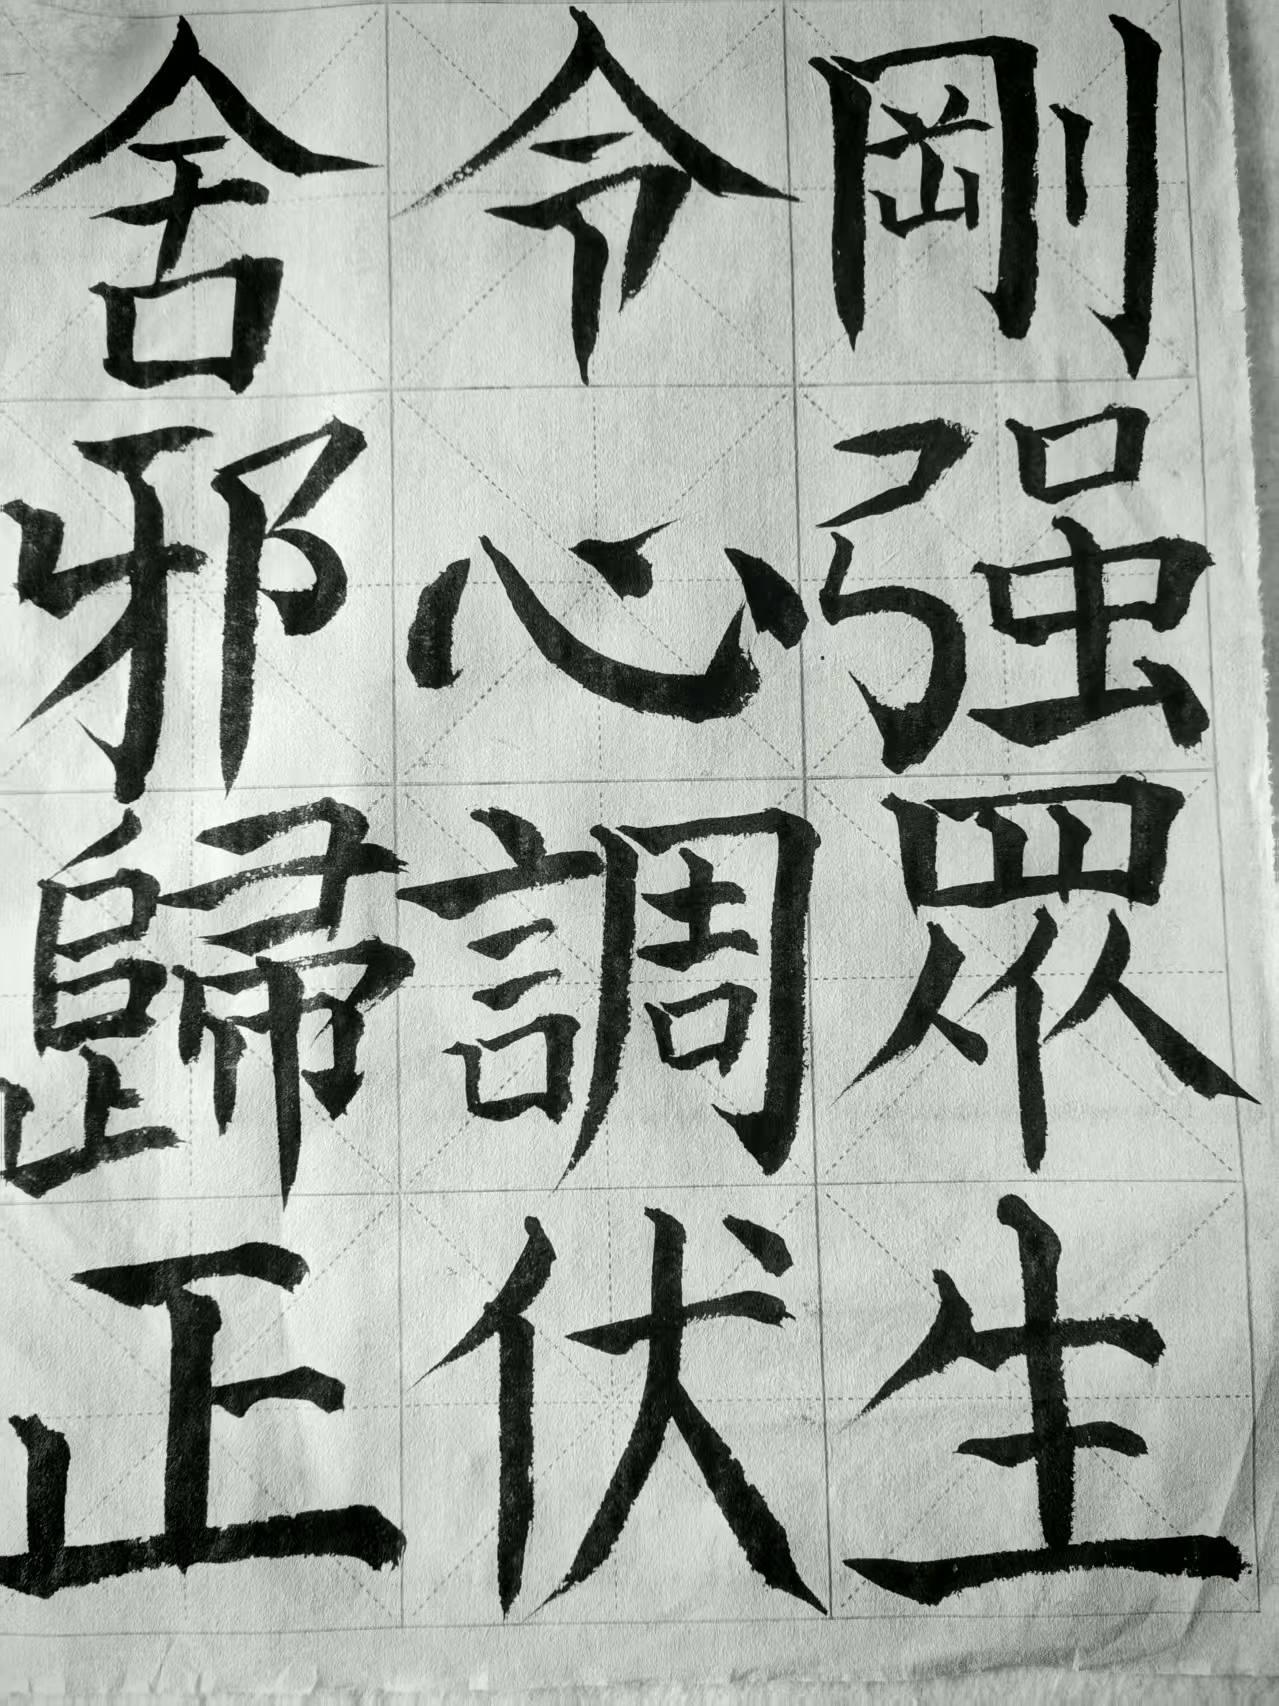 剛强眾生
令心調伏
舍邪歸正